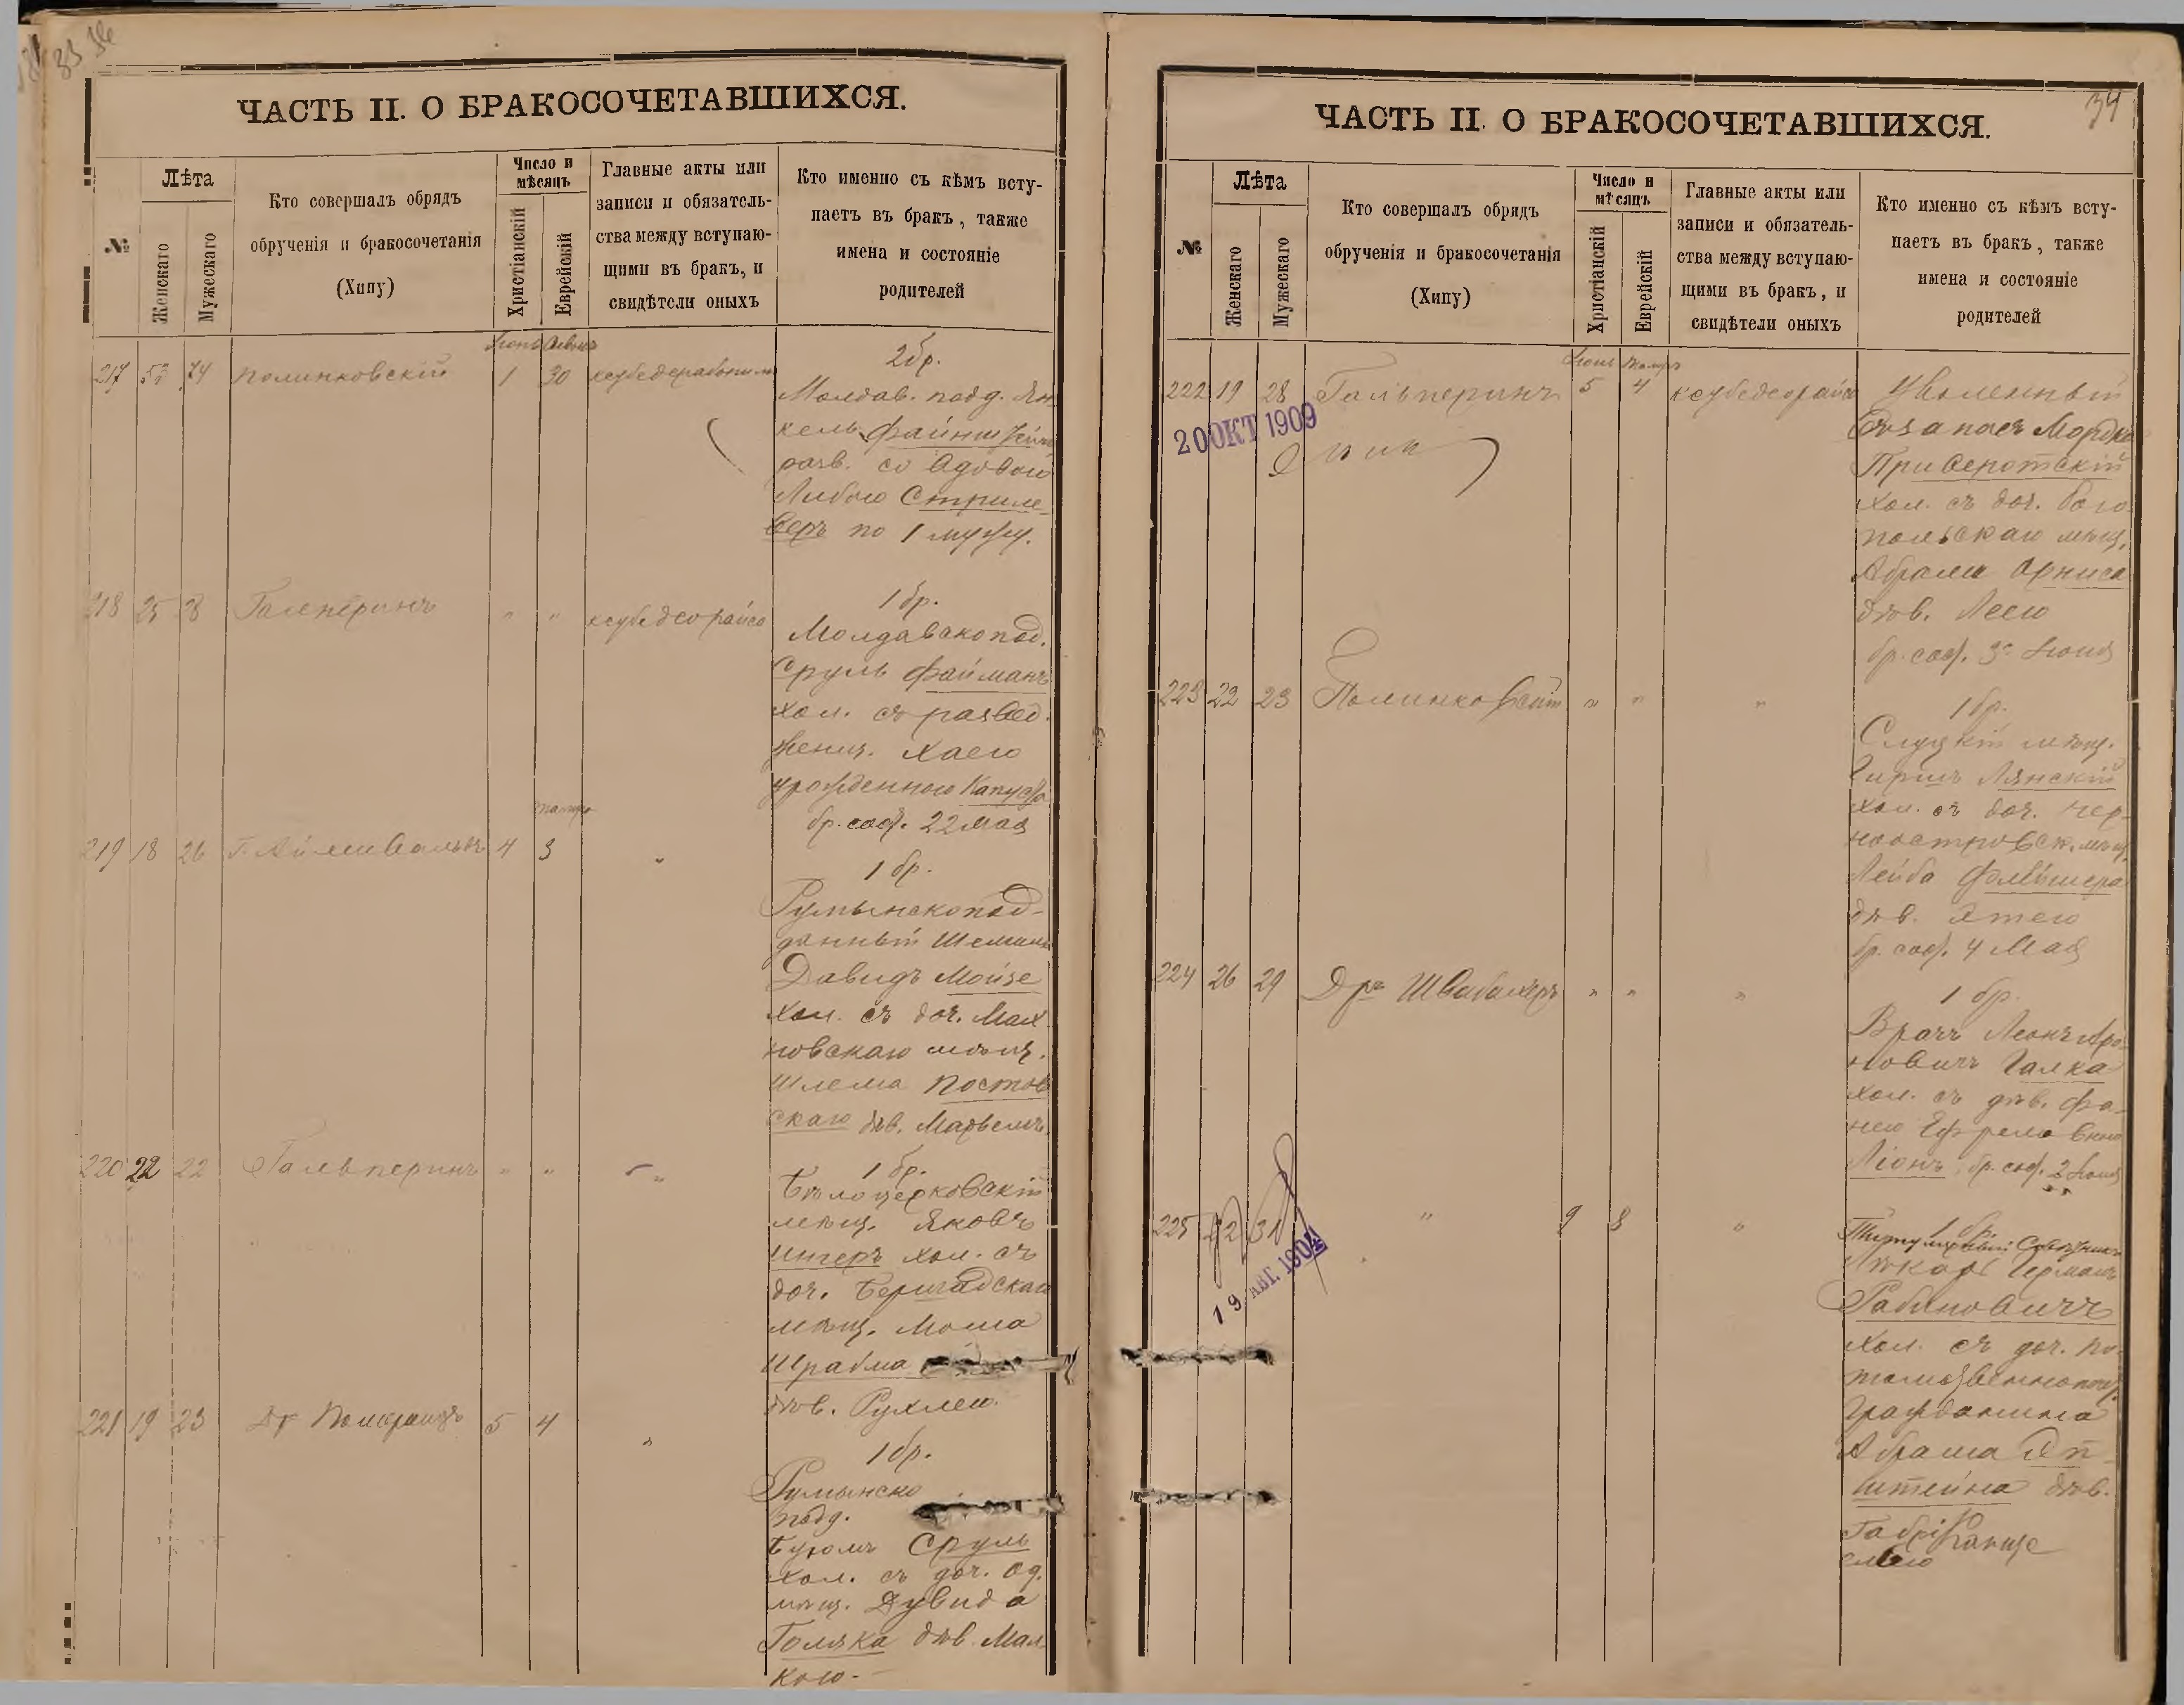 34
ЧАСТЬ II. О БРАКОСОЧЕТАВШИХСЯ.
№
Лѣта
Женскаго
Мужескаго
Кто совершалъ обрядъ
обрученія и бракосочетанія
(Хипу)
Число и
мѣсяцъ
Христіанскій
Еврейскій
Главные акты или
записи и обязатель-
ства между вступаю-
щими въ бракъ, и
свидѣтели оныхъ
Кто именно съ кѣмъ всту-
паетъ въ бракъ, также
имена и состояніе
родителей
217 53 74 Полинковскій 1 30
2 бр.
Молдав. подд. Ян
кель Файнштейн
разв. со вдовою
Либою Стриле-
веръ по 1 мужу.
218 25 28 Гальперинъ " " ксубедеорайсо
1 бр.
Молдавскопод.
Сруль Файманъ
хол. съ развед.
женщ. Хаею
урожденною Капуста
бр. сооб. 22 Мая
219 18 26 4 3 "
1 бр.
Румынскопод-
данный
Давидъ Мойзе
хол. съ доч. Мах
новскаго мѣщ.
Шлема Постов
скаго дѣв.
220 22 22 Гальперинъ " " "
1 бр.
Бѣлоцерковскій
мѣщ. Яковъ
Ингеръ хол. съ
доч. Бершадскаго
мѣщ. Моша
дѣв. Рухлею.
221 19 23 Др Померанцъ 5 4 "
1 бр.
Румынско
подд.
Сруль
хол. съ доч. Од.
мѣщ. Дувида
Голяка дѣв. Мал
кою.
ЧАСТЬ II. О БРАКОСОЧЕТАВШИХСЯ.
№
Лѣта
Женскаго
Мужескаго
Кто совершалъ обрядъ
обрученія и бракосочетанія
(Хипу)
Число и
мѣсяцъ
Христіанскій
Еврейскій
Главные акты или
записи и обязатель-
ства между вступаю-
щими въ бракъ, и
свидѣтели оныхъ
Кто именно съ кѣмъ всту-
паетъ въ бракъ, также
имена и состояніе
родителей
Іюнь
222 19 28 Гальперинъ 5 4 ксубедеорайсо
20 ОКТ 1909
Уволенный
въ запасъ Мордко
Приворотскій
хол. съ доч. Бого
польскаго мѣщ.
Абрама Орниса
дѣв. Леею
бр. сооб. 3 Іюня
223 22 23 Полинковскій " " "
1 бр.
Слуцкій мѣщ.
Гиршъ Лянскій
хол. съ доч. Чер-
ноостровск. мѣщ.
Лейба Фельдшера
дѣв. Этею
бр. сооб. 4 Мая
224 26 29 Дръ Швабахеръ " " "
1 бр.
Врачъ Леонъ Аро-
новичъ Галка
хол. съ дѣв. Фа-
нею Ефремовною
Ліонъ, бр. сооб. 2 Іюня
225 22 31 " 9 8 "
19 АВГ. 1904
1 бр.
Титулярный Совѣтникъ
Лѣкарь Германъ
Рабиновичъ
хол. съ доч. по-
томственно поч.
Гражданина
Абрама Эп-
штейна дѣв.
Габрі
елою